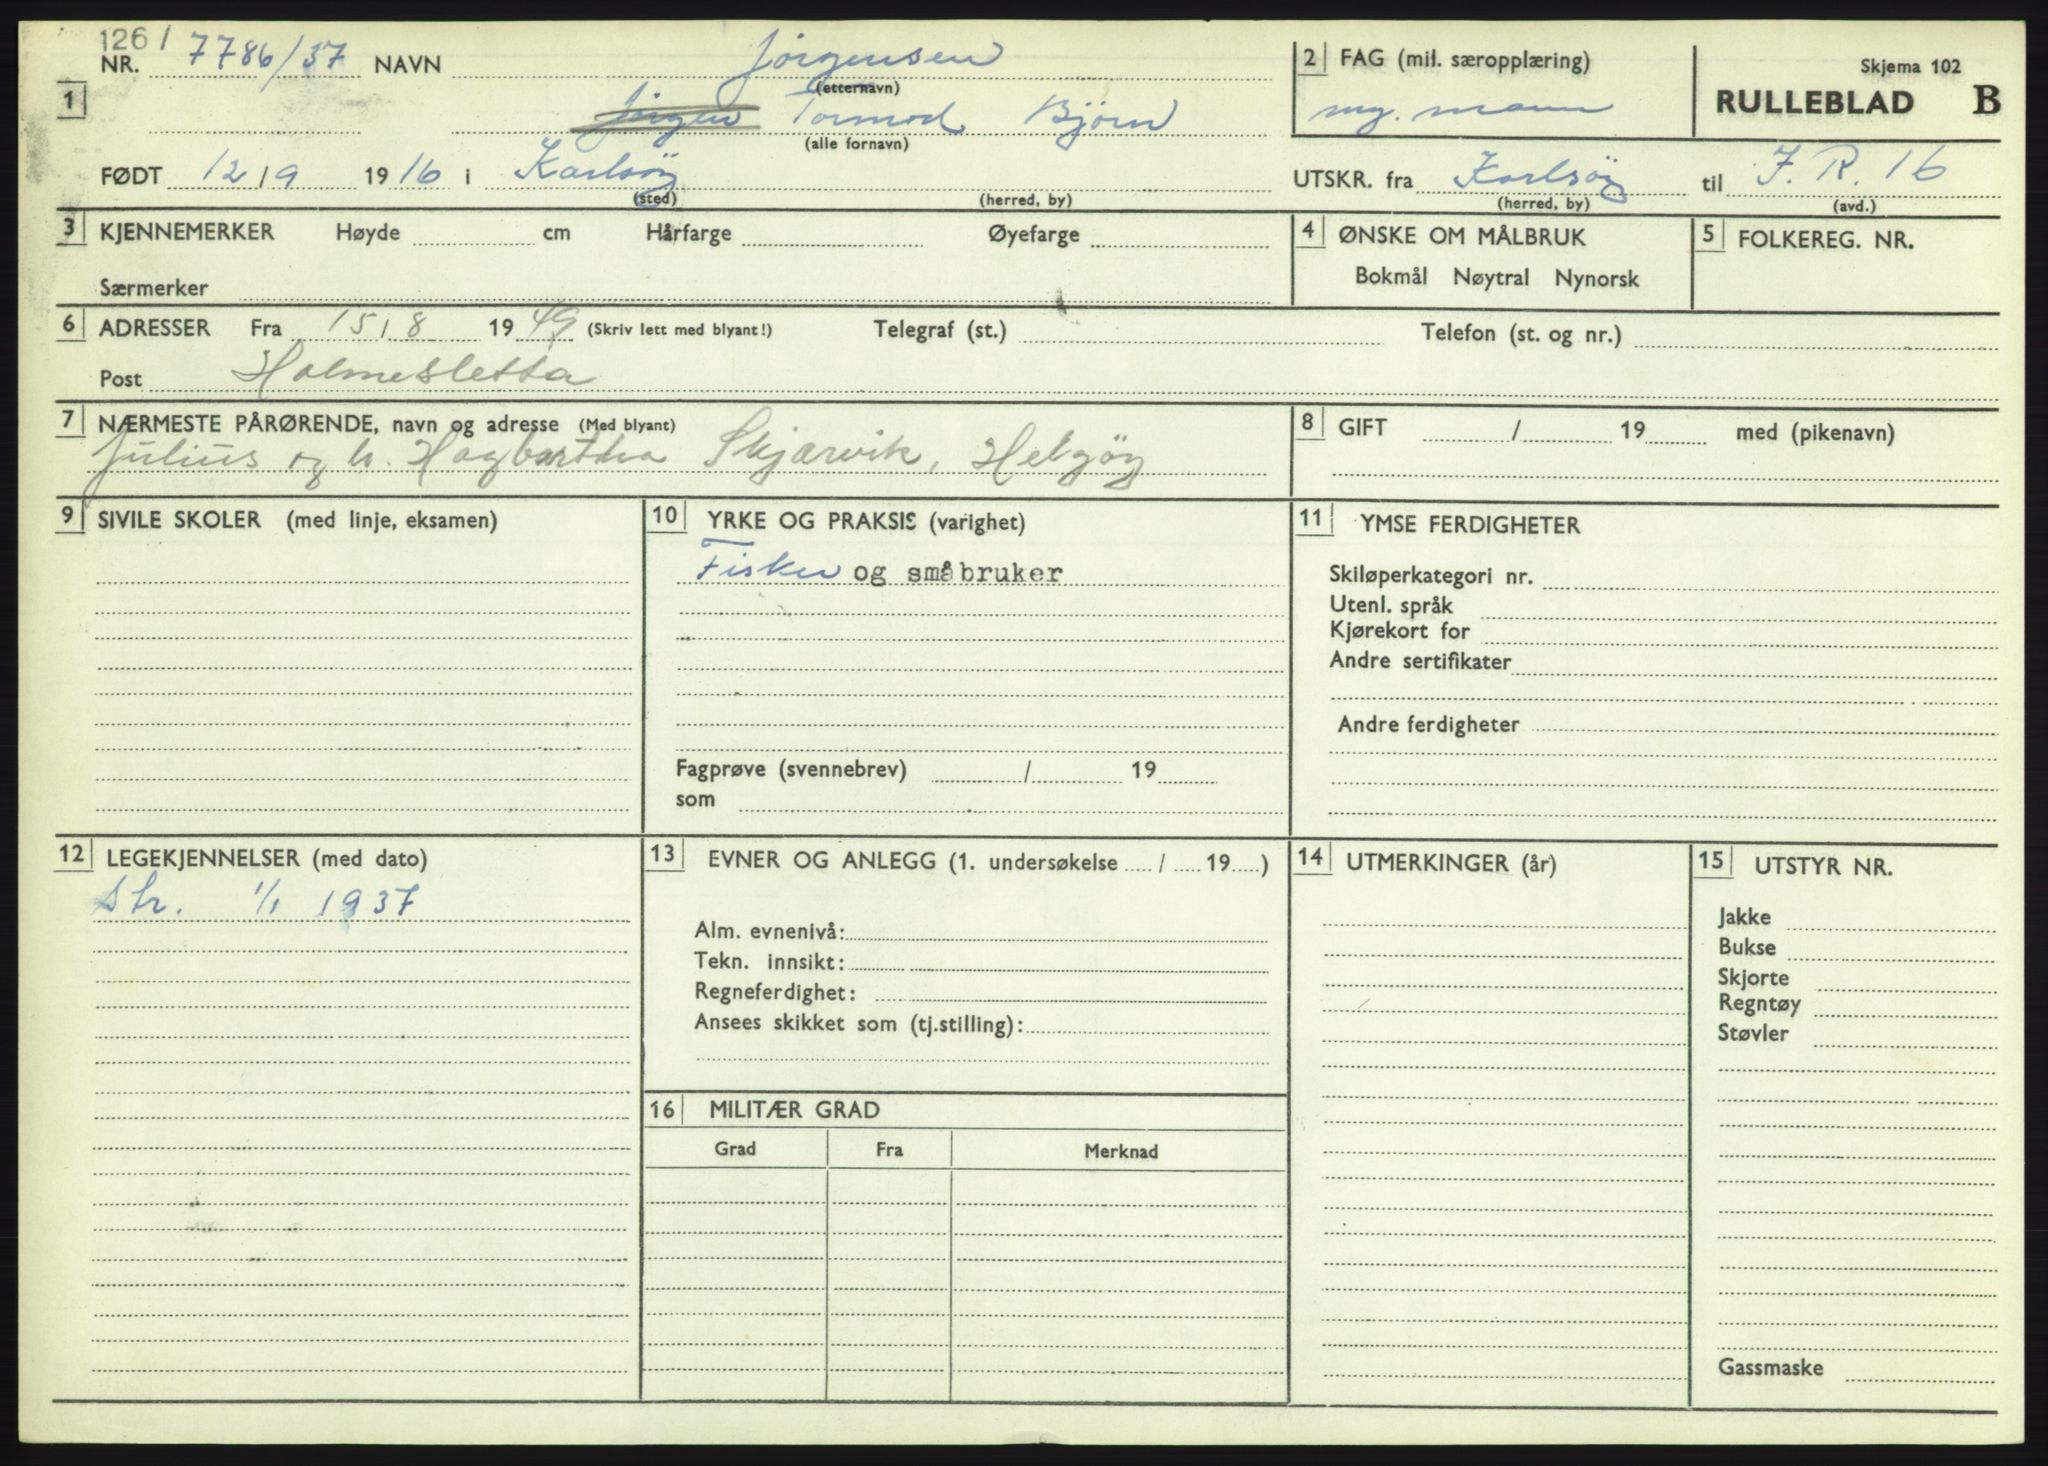 126 /
NR. 7786/37 NAVN Jörgensen
(etternavn)
1 Jörgen Tormod Björn
(alle fornavn)
FØDT 12 / 9 1916 i Karlsöy
(sted) (herred, by)
2 FAG (mil. særopplæring)
mg. mann
Skjema 102
RULLEBLAD B
UTSKR. fra Karlsöy til J. R. 16
(herred, by) (avd.)
3 KJENNEMERKER Høyde cm Hårfarge Øyefarge
Særmerker
4 ØNSKE OM MÅLBRUK
Bokmål Nøytral Nynorsk
5 FOLKEREG. NR.
6 ADRESSER Fra 15 / 8 1949 (Skriv lett med blyant!) Telegraf (st.) Telefon (st. og nr.)
Post Holmesletta
7 NÆRMESTE PÅRØRENDE, navn og adresse (Med blyant)
Julius og h. Hagbartha Skjærvik, Helgöy
8 GIFT / 19 med (pikenavn)
9 SIVILE SKOLER (med linje, eksamen)
10 YRKE OG PRAKSIS (varighet)
Fisker og småbruker
Fagprøve (svennebrev) / 19
som
11 YMSE FERDIGHETER
Skiløperkategori nr.
Utenl. språk
Kjørekort for
Andre sertifikater
Andre ferdigheter
12 LEGEKJENNELSER (med dato)
Str. 1/1 1937
13 EVNER OG ANLEGG (1. undersøkelse / 19 )
Alm. evnenivå:
Tekn. innsikt:
Regneferdighet:
Ansees skikket som (tj.stilling):
14 UTMERKINGER (år)
15 UTSTYR NR.
Jakke
Bukse
Skjorte
Regntøy
Støvler
Gassmaske
16 MILITÆR GRAD
Grad Fra Merknad